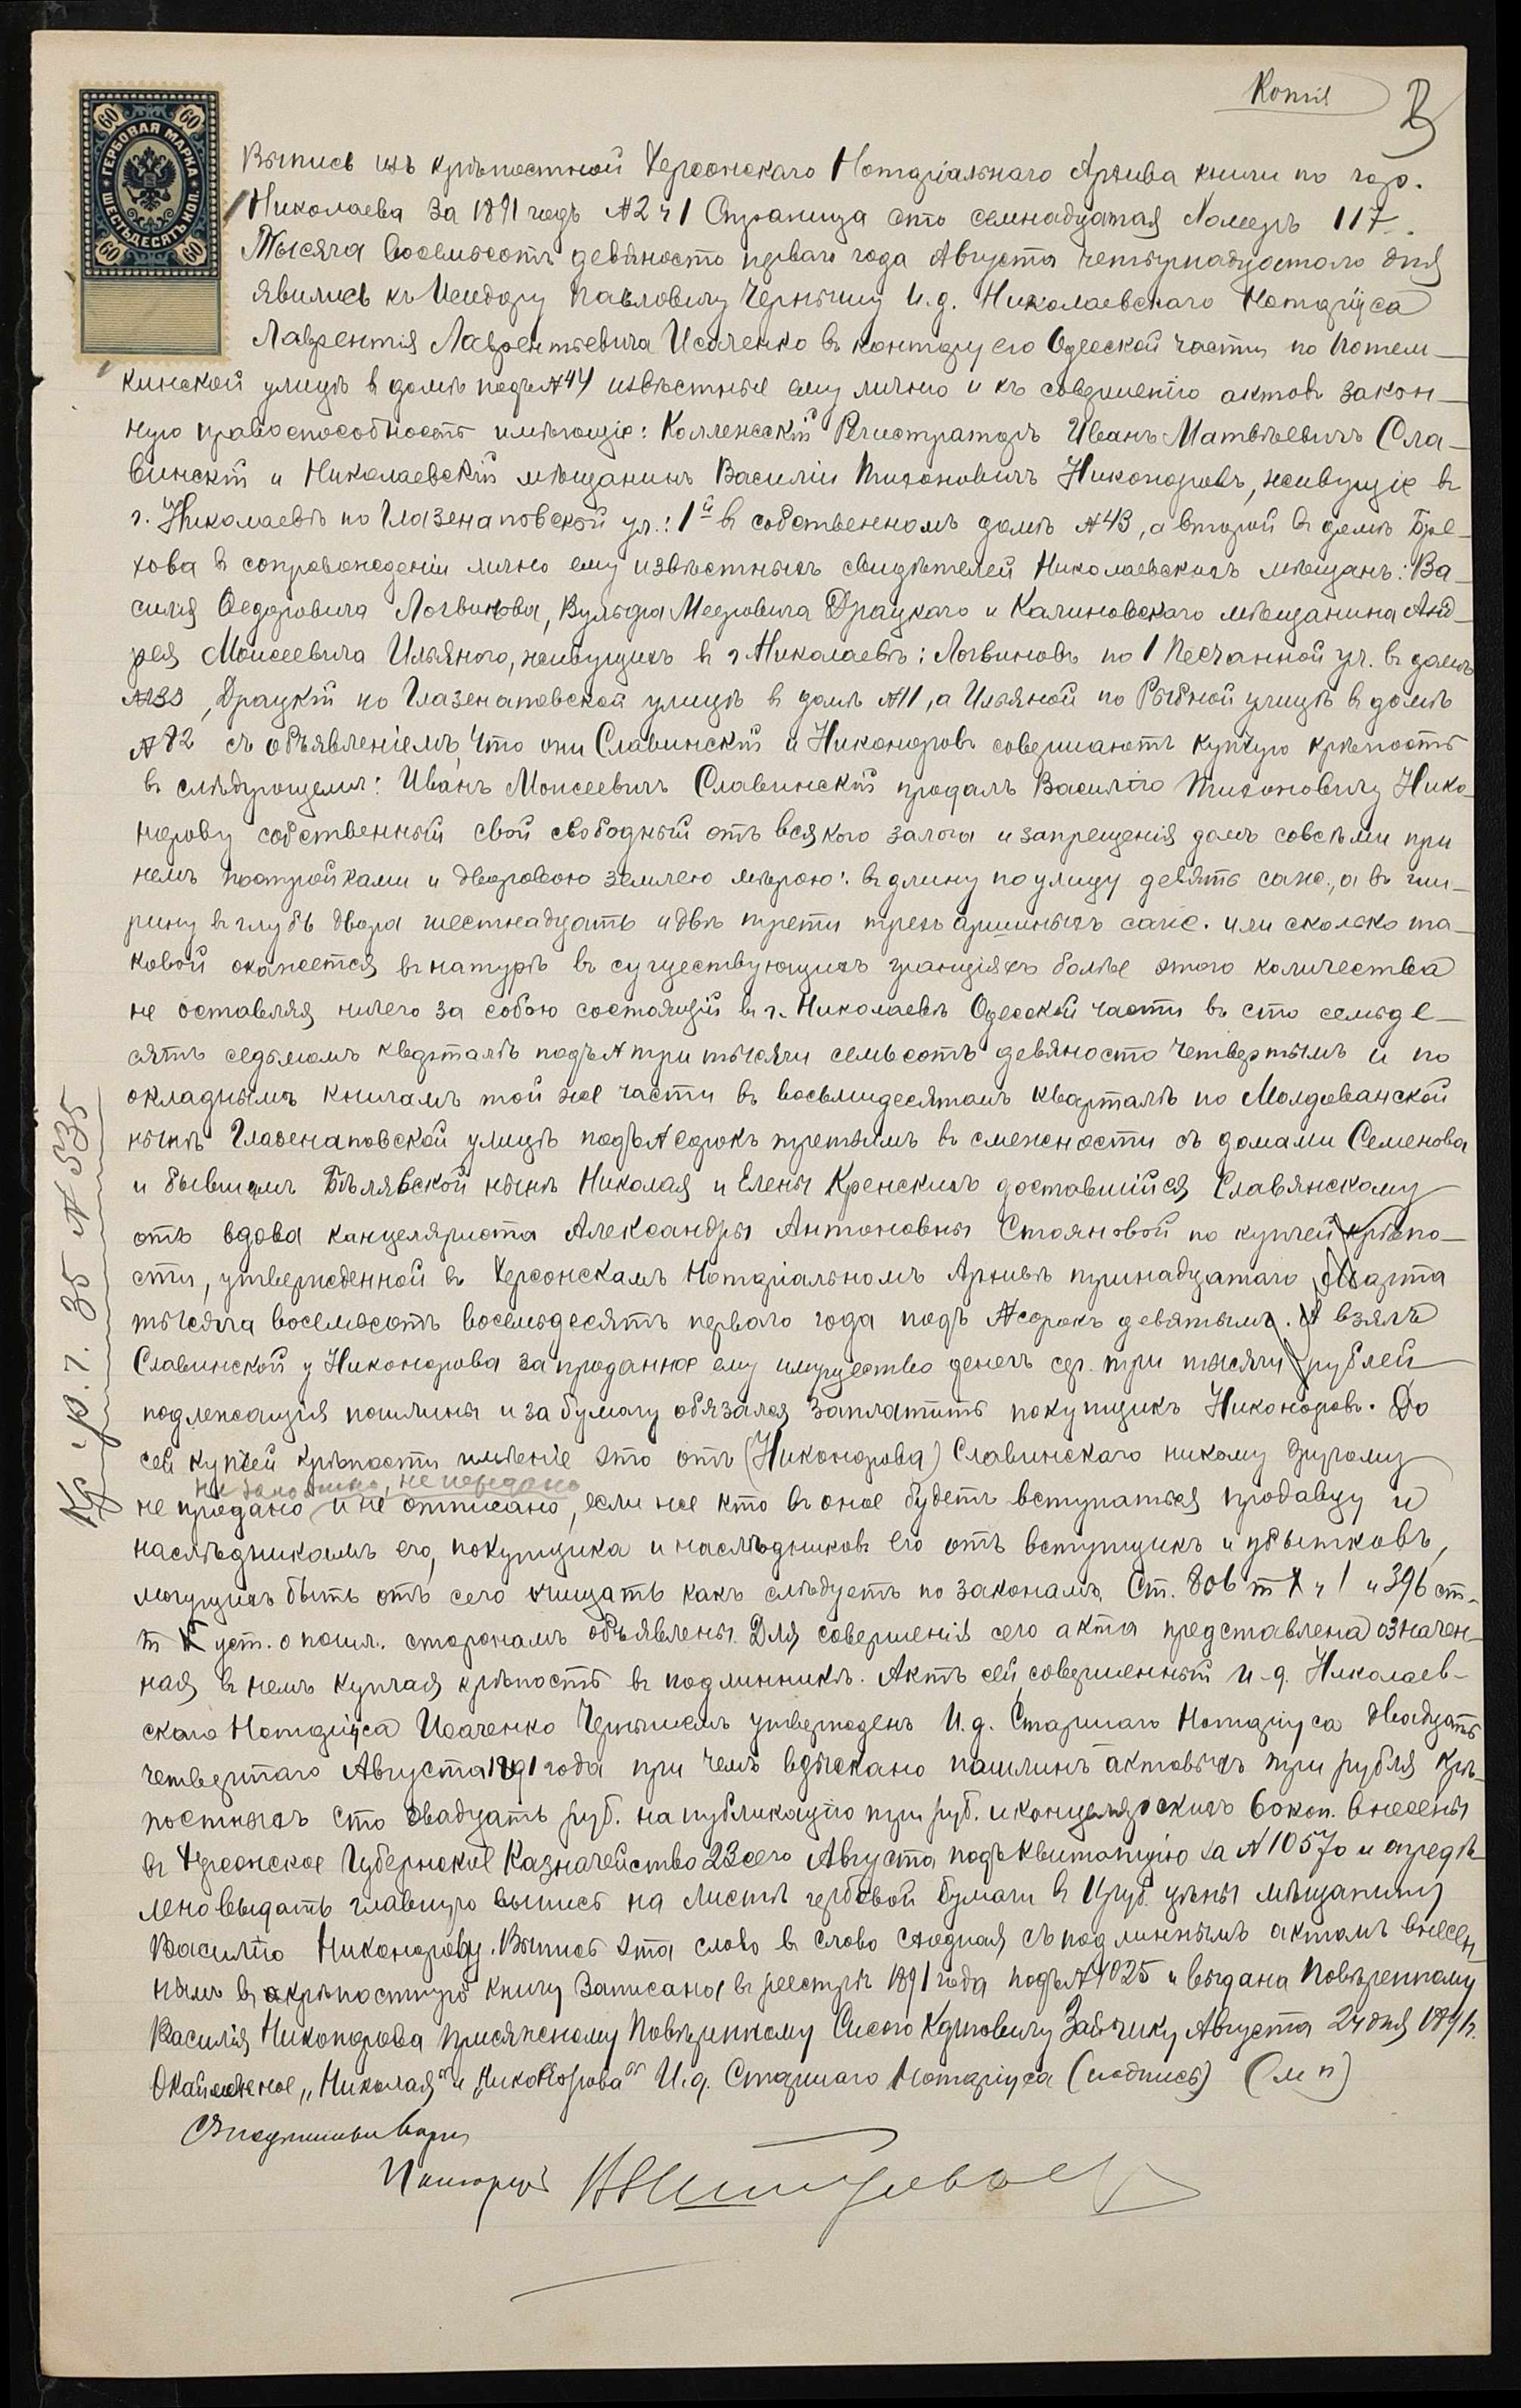 Копія
3
60 60
ГЕРБОВАЯ МАРКА
ШЕСТЬДЕСЯТЪ КОП.
60 60
Выпись изъ крѣпостной Херсонскаго Нотаріальнаго Архива книги по гор.
Николаева за 1891 годъ №2 ч 1 Страница сто семнадцатая Номеръ 117.
Тысяча восемьсотъ девяносто перваго года Августа четырнадцатаго дня
явились къ Исидору Павловичу Чернышу И.д. Николаевскаго Нотаріуса
Лаврентія Лаврентьевича Исаченко въ контору его Одесской части по Потем-
кинской улицѣ в домѣ подъ №44 извѣстные ему лично и къ совершенію актовъ закон-
ную правоспособность имѣющіе: Коллежскій Регистраторъ Иванъ Матвѣевичъ Сла-
винскій и Николаевскій мѣщанинъ Василій Тихоновичъ Никоноровъ, живущіе въ
г. Николаевѣ по Глазенаповской ул.: 1й въ собственномъ домѣ №43, а второй въ домѣ Бре-
хова в сопровожденіи лично ему извѣстныхъ свидѣтелей Николаевскихъ мѣщанъ: Ва-
силія Ѳедоровича Логвинова, Вульфа Мееровича Драцкаго и Калиновскаго мѣщанина Анд-
рея Моисеевича Ильяного, живущихъ в г. Николаевѣ: Логвиновъ по 1 Песчанной ул. въ домѣ
№33, Драцкій по Глазенаповской улицѣ в домѣ №11, а Ильяной по Рыбной улицѣ в домѣ
№82 съ объявленіемъ, что они Славинскій и Никоноровъ совершаютъ купчую крѣпость
въ слѣдующемъ: Иванъ Моисеевичъ Славинскій продалъ Василію Тихоновичу Нико-
норову собственный свой свободный отъ всякого залога и запрещенія домъ совсѣми при
немъ постройками и дворовою землею мѣрою: въ длину по улицу девять саж., а въ ши-
рину в глубь двора шестнадцать и двѣ трети трехъ аршинныхъ саж. или сколько та-
ковой окажется въ натурѣ въ существующихъ границіяхъ болѣе этого количества
не оставляя ничего за собою состоящій въ г. Николаевѣ Одесской части въ сто семьде-
сятъ седьмомъ кварталѣ подъ № три тысячи семьсотъ девяносто четвертымъ и по
окладнымъ книгамъ той же части въ восьмидесятомъ кварталѣ по Молдованской
нынѣ Глазенаповской улицѣ подъ № сорокъ третьимъ въ смежности съ домами Семенова
и бывшемъ Бѣлявской нынѣ Николая и Елены Кренскихъ доставшійся Славянскому
отъ вдова канцеляриста Александры Антоновны Стояновой по купчей крѣпо-
сти, утвержденной въ Херсонскомъ Нотаріальномъ Архивѣ тринадцатаго Марта
тысяча восемьсотъ восемьдесятъ перваго года подъ № сорокъ девятымъ. А взялъ
Славинской у Никонорова за проданное ему имущество денегъ сер. три тысячи рублей
подлежащія пошлины и за бумагу обязался заплатить покупщикъ Никоноровъ. До
сей купчей крѣпости имѣніе это отъ (Никонорова) Славинскаго никому другому
не заложено, не передано
не продано и не отписано, если же кто въ оное будетъ вступаться продавцу и
наслѣдникамъ его, покупщика и наслѣдниковъ его отъ вступщикъ и убытковъ,
могущихъ быть отъ сего очищать какъ слѣдуетъ по законамъ. Ст. 806 т X ч 1 и 396 ст.
т V уст. о пошл. сторонамъ объявлены. Для совершенія сего акта представлена означен-
ная въ немъ купчая крѣпость въ подлинникѣ. Актъ сей совершенный И.д. Николаев-
скаго Нотаріуса Исаченко Чернышемъ утвержденъ И.д. Старшаго Нотаріуса двадцать
четвертаго Августа 1891 года при чемъ взыскано пошлинъ актовыхъ три рубля крѣ-
постныхъ сто двадцать руб. на публикацію три руб. и канцелярскихъ 60 коп. внесены
въ Херсонское Губернское Казначейство 23 сего Августа подъ квитанцію за №10570 и опредѣ-
лено выдать главную выпись на листѣ гербовой бумаги в руб. цѣны мѣщанину
Василію Никонорову. Выпись эта слово в слово сходная съ подлиннымъ актомъ внесен-
нымъ въ крѣпостную книгу записана въ реестръ 1891 года подъ № 1025 и выдана Повѣренному
Василія Никонорова присяжному Повѣренному Карповичу Зайчику Августа 24 дня 1891 г.
Окаймленное „Николая" и „Никонорова" И.д. Старшаго Нотаріуса (подпись) (м п)
Съ подлиннымъ вѣрно
Нотаріусъ
Кр. у р. г. 35 № 535